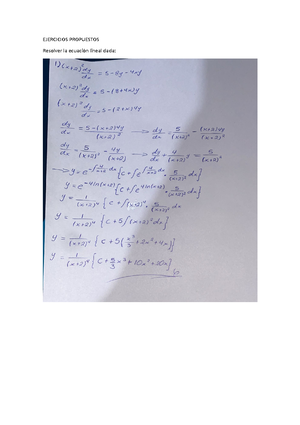 EJERCICIOS PROPUESTOS
Resolver la ecuación lineal dada:
1) (x+2)² dy/dx = 5-8y-4xy
(x+2)² dy/dx = 5-(8+4x)y
(x+2)² dy/dx = 5-(8+4x)y
dy/dx = 5-(x+2)4y/(x+2)² → dy/dx = 5/(x+2)² - (x+2)4y/(x+2)²
dy/dx = 5/(x+2)² - 4y/(x+2) → dy/dx + 4/(x+2) y = 5/(x+2)²
→ y = e^-∫4/(x+2) dx [c+∫e^∫4/(x+2) dx · 5/(x+2)² dx]
y = e^-4ln(x+2) [c+∫e^4ln(x+2) · 5/(x+2)² dx]
y = 1/(x+2)⁴ [c+∫(x+2)⁴ · 5/(x+2)² dx]
y = 1/(x+2)⁴ [c+5∫(x+2)² dx]
y = 1/(x+2)⁴ [c+5(x³/3+2x²+4x)]
y = 1/(x+2)⁴ [c+5/3 x³+10x²+20x]